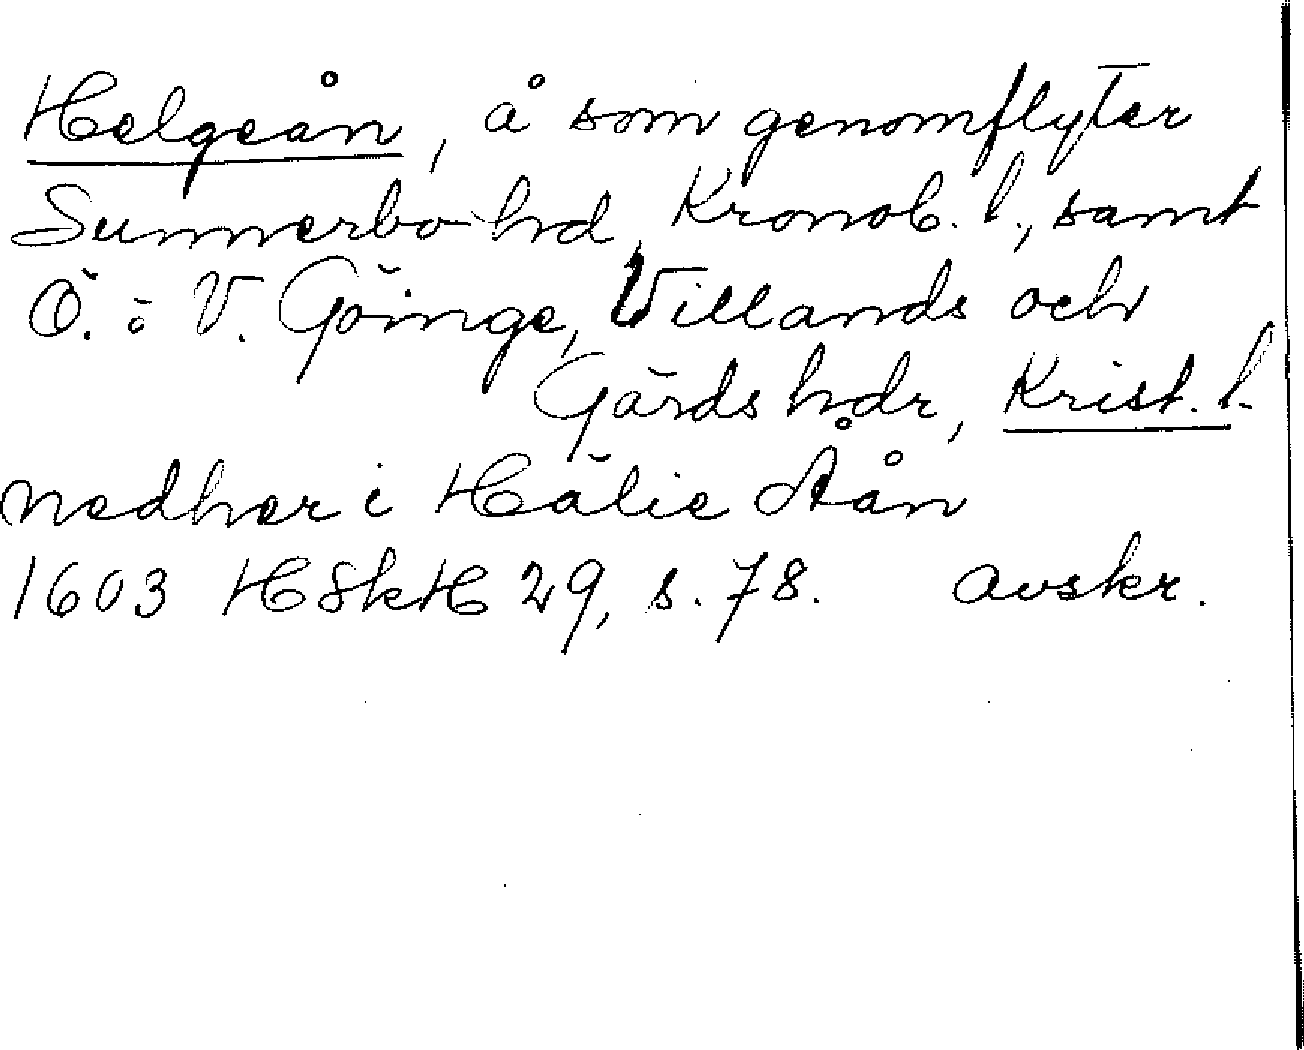 Helgeån, å som genomflyter
Sunnerbo hd, Kronob. l., samt
Ö. o V. Göinge, Villands och
Gärds hdr, Krist. l.
nedher i Hälie Åån
1603 HSkH 29, s. 78. avskr.